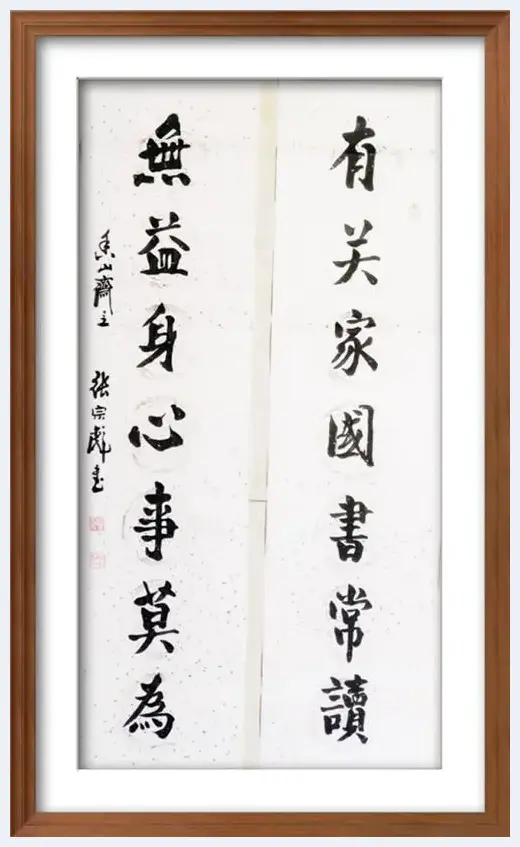 有关家國書常讀
無益身心事莫為
香山齋主 張宗彪书